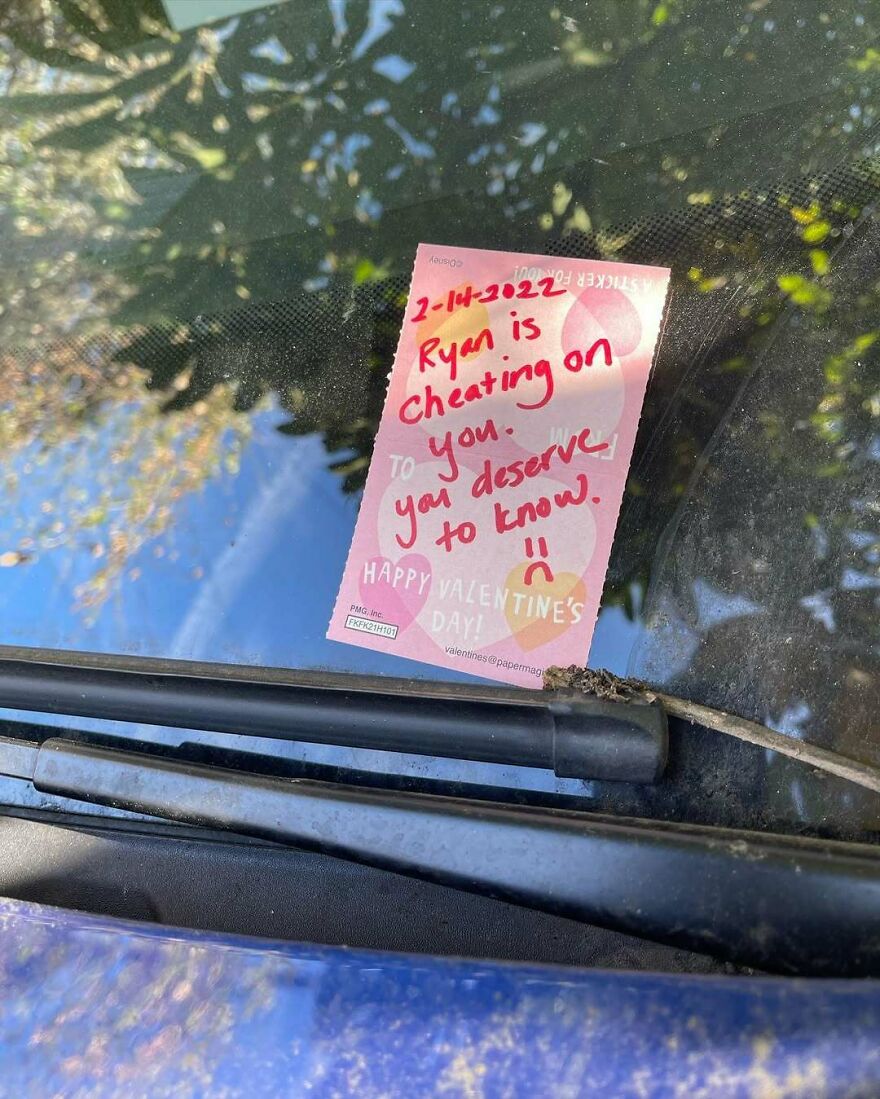 ©Disney
A STICKER FOR YOU!
2-14-2022
Ryan is
cheating on
you.
FROM
TO
you deserve
to know.
:(
HAPPY VALENTINE'S
DAY!
PMG, Inc.
FKFK21H101
valentines@papermagi